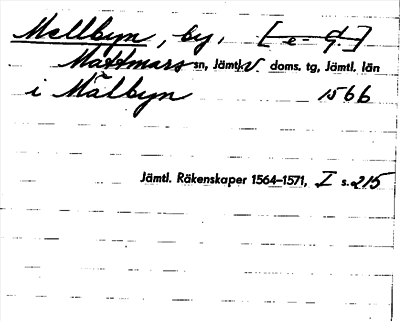 Mallbyn, by,
Mattmars sn, Jämtl. v. doms. tg, Jämtl. län
i Målbyn 1566
Jämtl. Räkenskaper 1564-1571, I s. 215